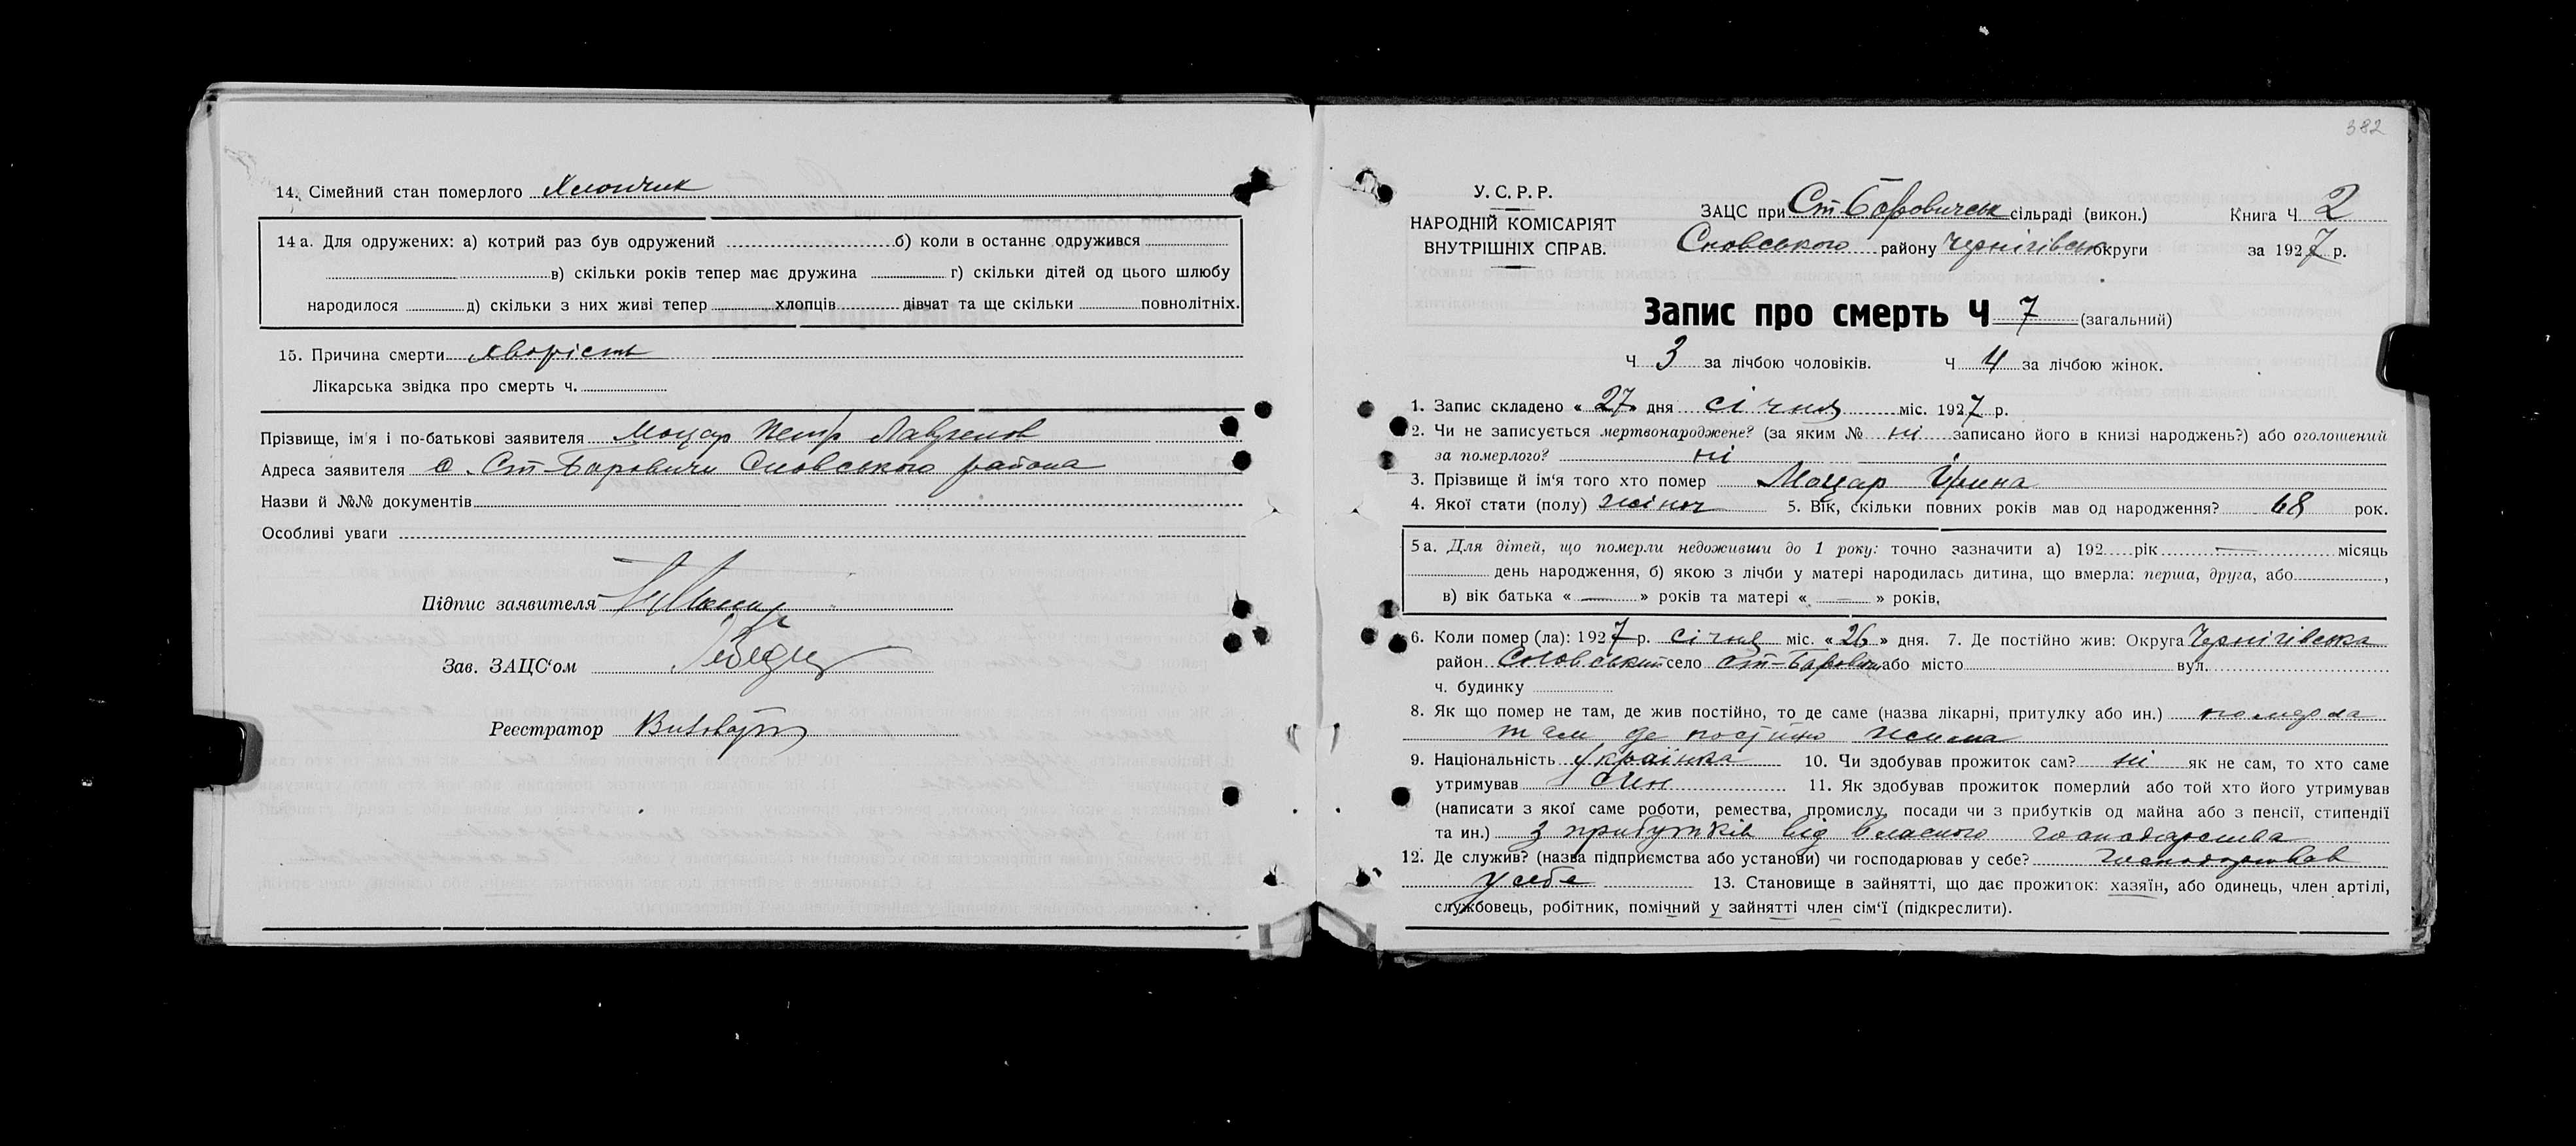 14. Сімейний стан померлого Хлопчик
14 а. Для одружених: а) котрий раз був одружений б) коли в останнє одружився
в) скільки років тепер має дружина г) скільки дітей од цього шлюбу
народилося д) скільки з них живі тепер хлопців дівчат та ще скільки повнолітніх.
15. Причина смерти хворість
Лікарська звідка про смерть ч.
Прізвище, ім'я і по-батькові заявителя Моцар Петр Лавренов
Адреса заявителя с. Ст-Боровичи Сновського района
Назви й №№ документів
Особливі уваги
Підпис заявителя Моцар
Зав. ЗАЦС'ом
Реєстратор
382
У. С. Р. Р.
НАРОДНІЙ КОМІСАРІЯТ
ВНУТРІШНІХ СПРАВ.
ЗАЦС при Ст-Боровичськ сільраді (викон.) Книга Ч 2
Сновського району Чернігівськ округи за 1927 р.
Запис про смерть Ч 7 (загальний)
Ч 3 за лічбою чоловіків. Ч 4 за лічбою жінок.
1. Запис складено « 27 » дня січня міс. 1927 р.
2. Чи не записується мертвонароджене? (за яким № ні записано його в книзі народжень?) або оголошений
за померлого? ні
3. Прізвище й ім'я того хто помер Моцар Ірина
4. Якої стати (полу) жіноч 5. Вік, скільки повних років мав од народження? 68 рок.
5 а. Для дітей, що померли недоживши до 1 року: точно зазначити а) 192 рік — місяць
день народження, б) якою з лічби у матері народилась дитина, що вмерла: перша, друга, або ,
в) вік батька « — » років та матері « — » років,
6. Коли помер (ла): 1927 р. січня міс. « 26 » дня. 7. Де постійно жив: Округа Чернігівська
район Сновський село Ст-Боровичи або місто вул.
ч. будинку
8. Як що помер не там, де жив постійно, то де саме (назва лікарні, притулку або ин.) померла
там де постійно жила
9. Національність українка 10. Чи здобував прожиток сам? ні як не сам, то хто саме
утримував син 11. Як здобував прожиток померлий або той хто його утримував
(написати з якої саме роботи, ремества, промислу, посади чи з прибутків од майна або з пенсії, стипендії
та ин.) з прибутків від власного господарства
12. Де служив? (назва підприємства або установи) чи господарював у себе? господарював
у себе 13. Становище в зайнятті, що дає прожиток: хазяїн, або одинець, член артілі,
службовець, робітник, помічний у зайнятті член сім'ї (підкреслити).